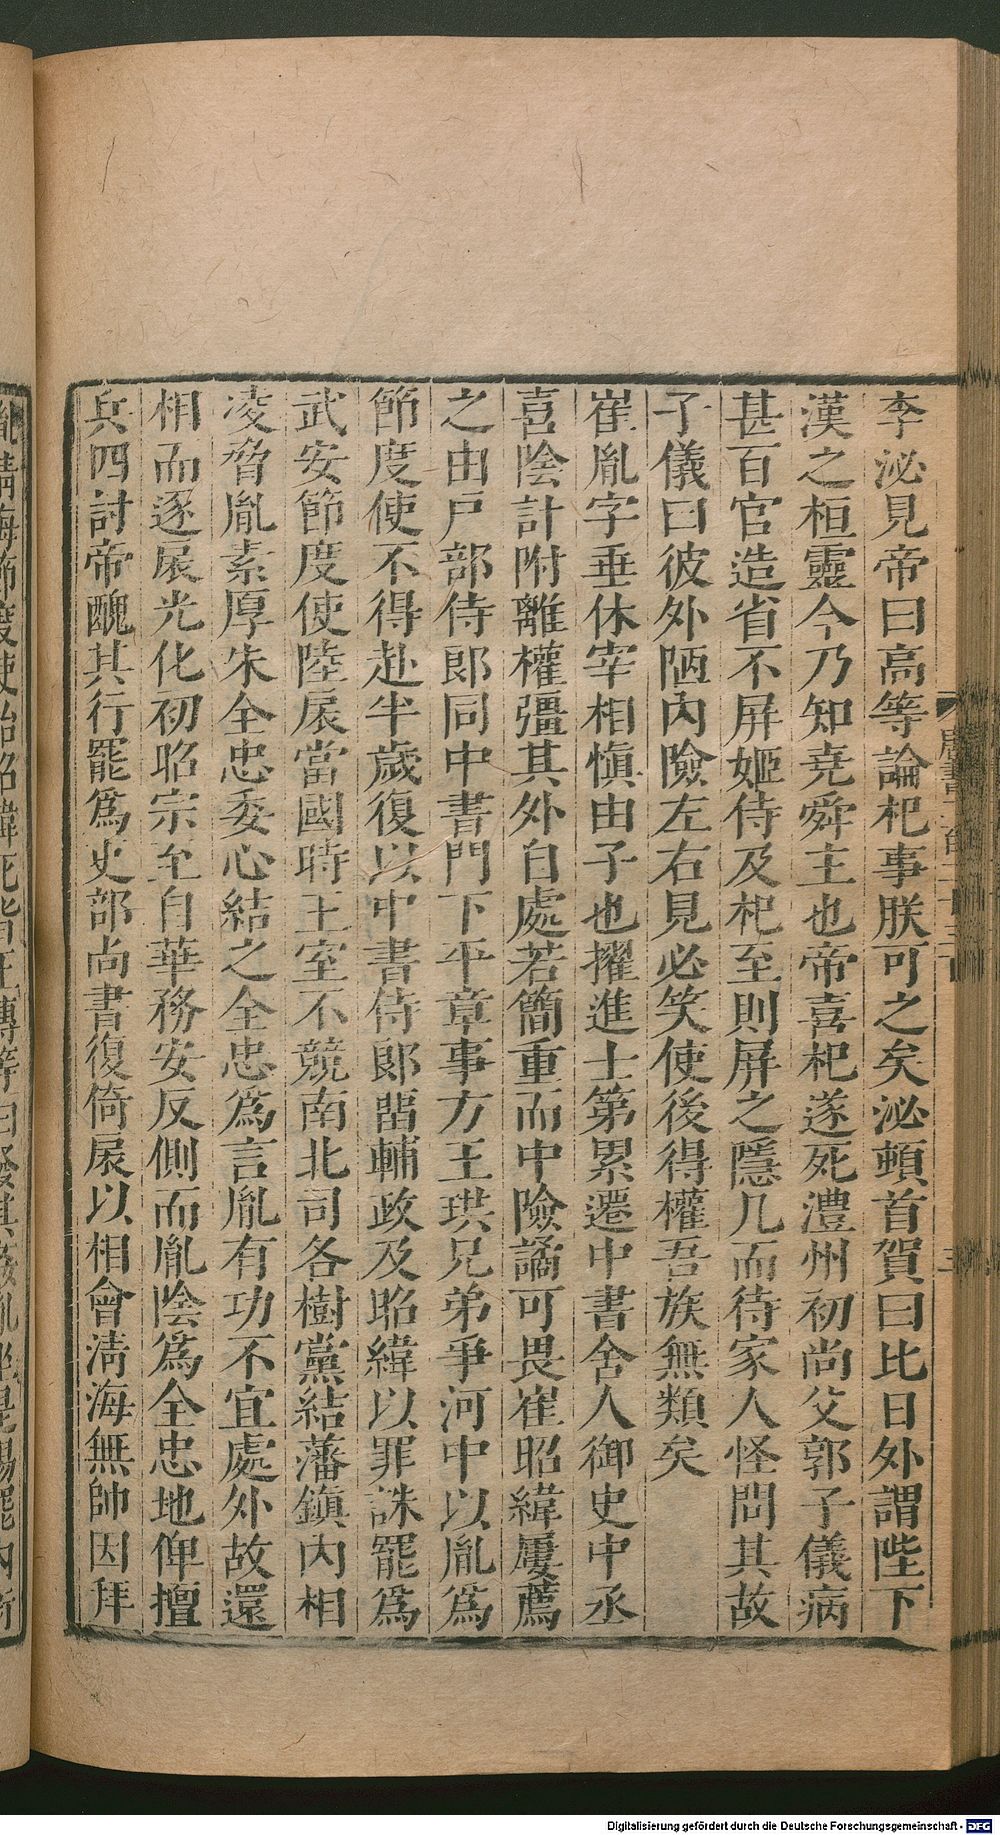 李泌見帝曰高等論杞事朕可之矣泌頓首賀曰比日外謂陛下
漢之桓靈今乃知堯舜主也帝喜杞遂死澧州初尚父郭子儀病
甚百官造省不屏姬侍及杞至則屏之隱几而待家人怪問其故
子儀曰彼外陋內險左右見必笑使後得權吾族無類矣
崔胤字垂休宰相慎由子也擢進士第累遷中書舍人御史中丞
喜陰計附離權彊其外自處若簡重而中險譎可畏崔昭緯屢薦
之由戶部侍郎同中書門下平章事方王珙兄弟爭河中以胤爲
節度使不得赴半歲復以中書侍郎畱輔政及昭緯以罪誅罷爲
武安節度使陸扆當國時王室不競南北司各樹黨結藩鎮內相
凌脅胤素厚朱全忠委心結之全忠爲言胤有功不宜處外故還
相而逐扆光化初昭宗至自華務安反側而胤陰爲全忠地俾擅
兵四討帝醜其行罷爲吏部尚書復倚扆以相會清海無帥因拜
Digitalisierung gefördert durch die Deutsche Forschungsgemeinschaft - DFG